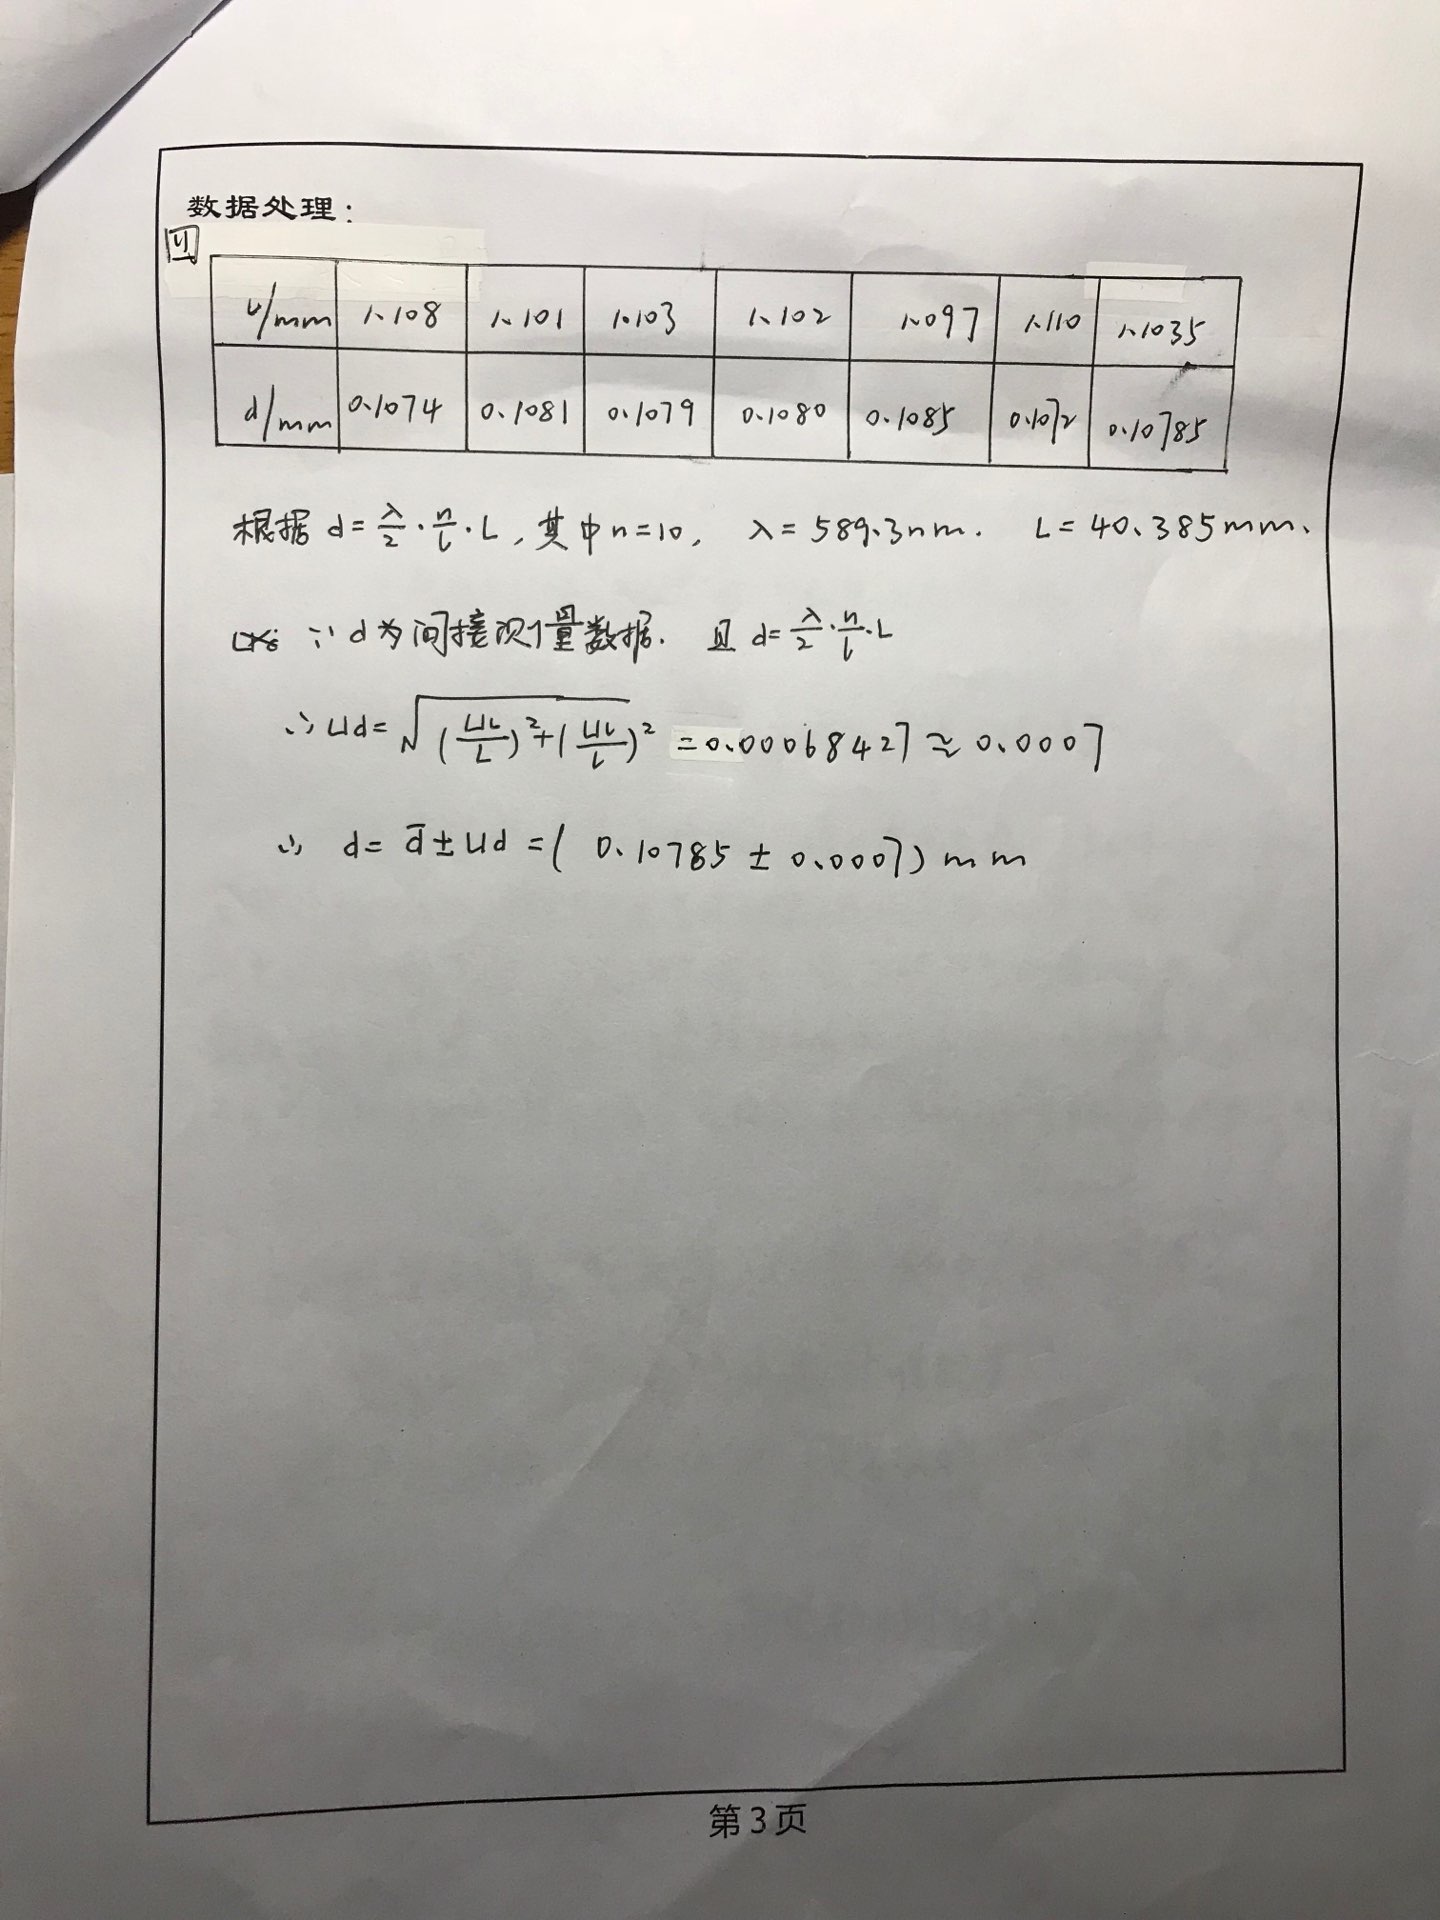 数据处理:
四
l/mm 1.108 1.101 1.103 1.102 1.097 1.110 1.1035
d/mm 0.1074 0.1081 0.1079 0.1080 0.1085 0.1072 0.10785
根据 d=λ/2·n/l·L,其中n=10, λ=589.3nm. L=40.385mm.
∵ d为间接测量数据. 且 d=λ/2·n/l·L
∴ Ud=√(UL/L)²+(Ul/l)² =0.00068427≈0.0007
∴ d= d̄±Ud=(0.10785±0.0007)mm
第3页